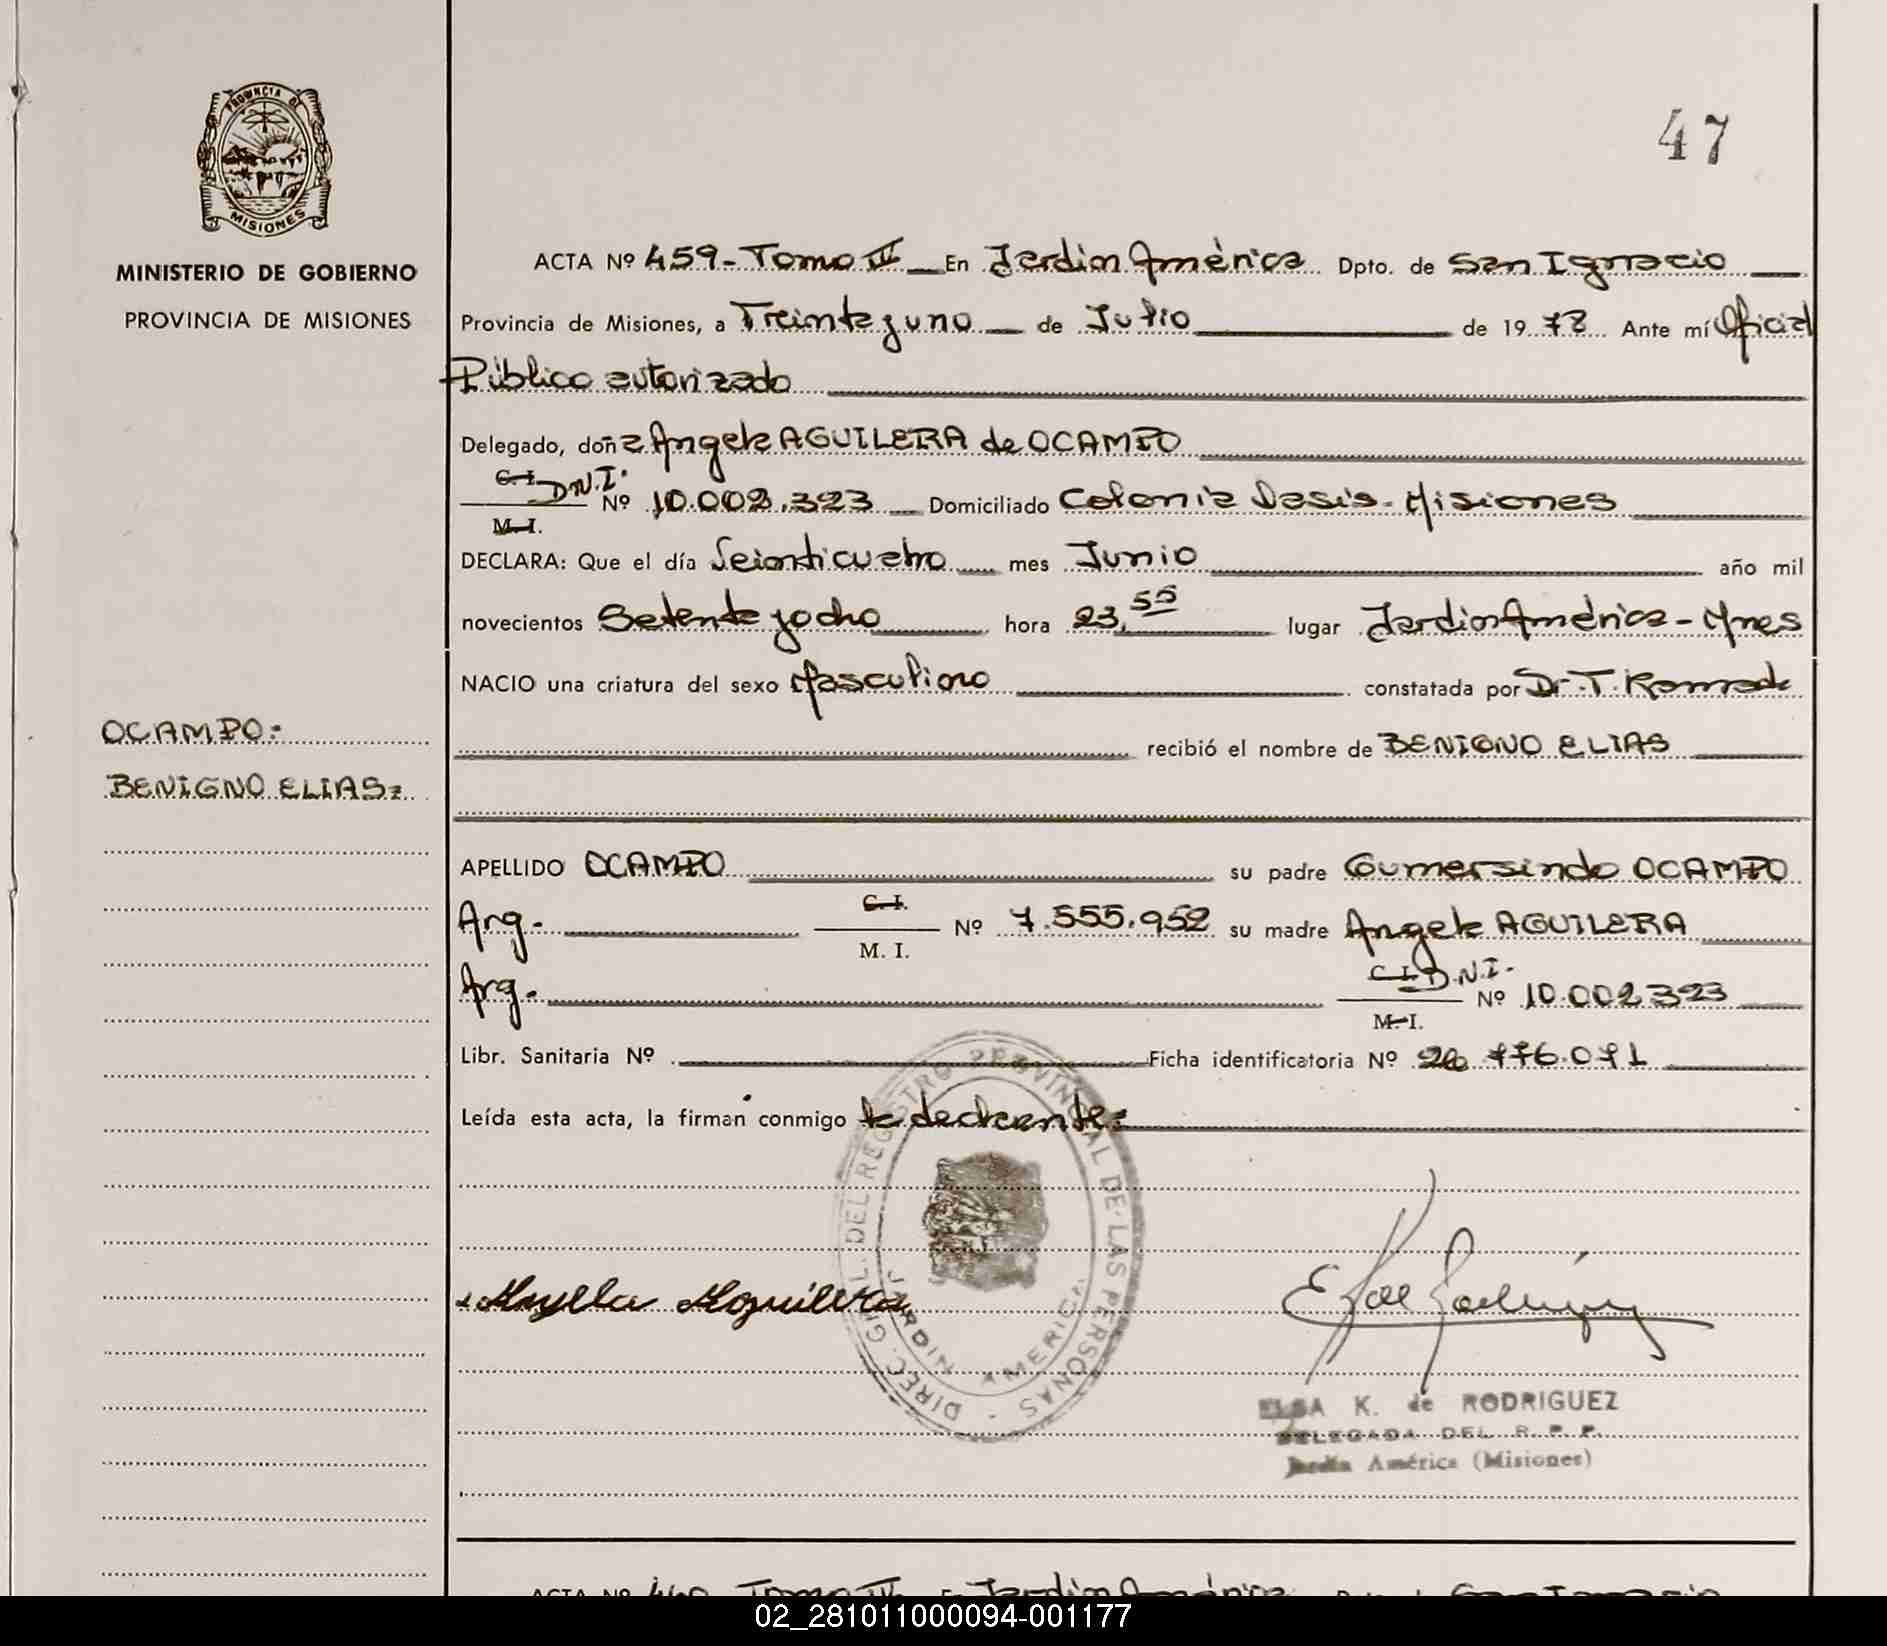 47
PROVINCIA DE
MISIONES
MINISTERIO DE GOBIERNO
PROVINCIA DE MISIONES
ACTA Nº 459-Tomo III En Jardin América Dpto. de San Ignacio
Provincia de Misiones, a Treinta y uno de Julio de 1978 Ante mí Oficial
Público autorizado
Delegado, doña Angela AGUILERA de OCAMPO
C.I. D.N.I.
M.I. Nº 10.002.323 Domiciliado Colonia Oasis-Misiones
DECLARA: Que el día Veinticuatro mes Junio año mil
novecientos Setenta y ocho hora 23,55 lugar Jardin América-Mnes
NACIO una criatura del sexo Masculino constatada por Dr. T.
OCAMPO:
BENIGNO ELIAS:
recibió el nombre de BENIGNO ELIAS
APELLIDO OCAMPO su padre Gumersindo OCAMPO
Arg. C.I. M.I. Nº 7.555.952 su madre Angela AGUILERA
Arg. C.I. D.N.I. M.I. Nº 10.002.323
Libr. Sanitaria Nº Ficha identificatoria Nº 26 776.071
Leída esta acta, la firman conmigo la declarante:
DIREC. GRAL. DEL REGISTRO PROVINCIAL DE LAS PERSONAS -
JARDIN AMERICA
Aguilera
Elsa Rodriguez
ELSA K. de RODRIGUEZ
DELEGADA DEL R. P. P.
Jardín América (Misiones)
ACTA Nº 460 Tomo III En Jardin América Dpto. de San Ignacio
02_281011000094-001177